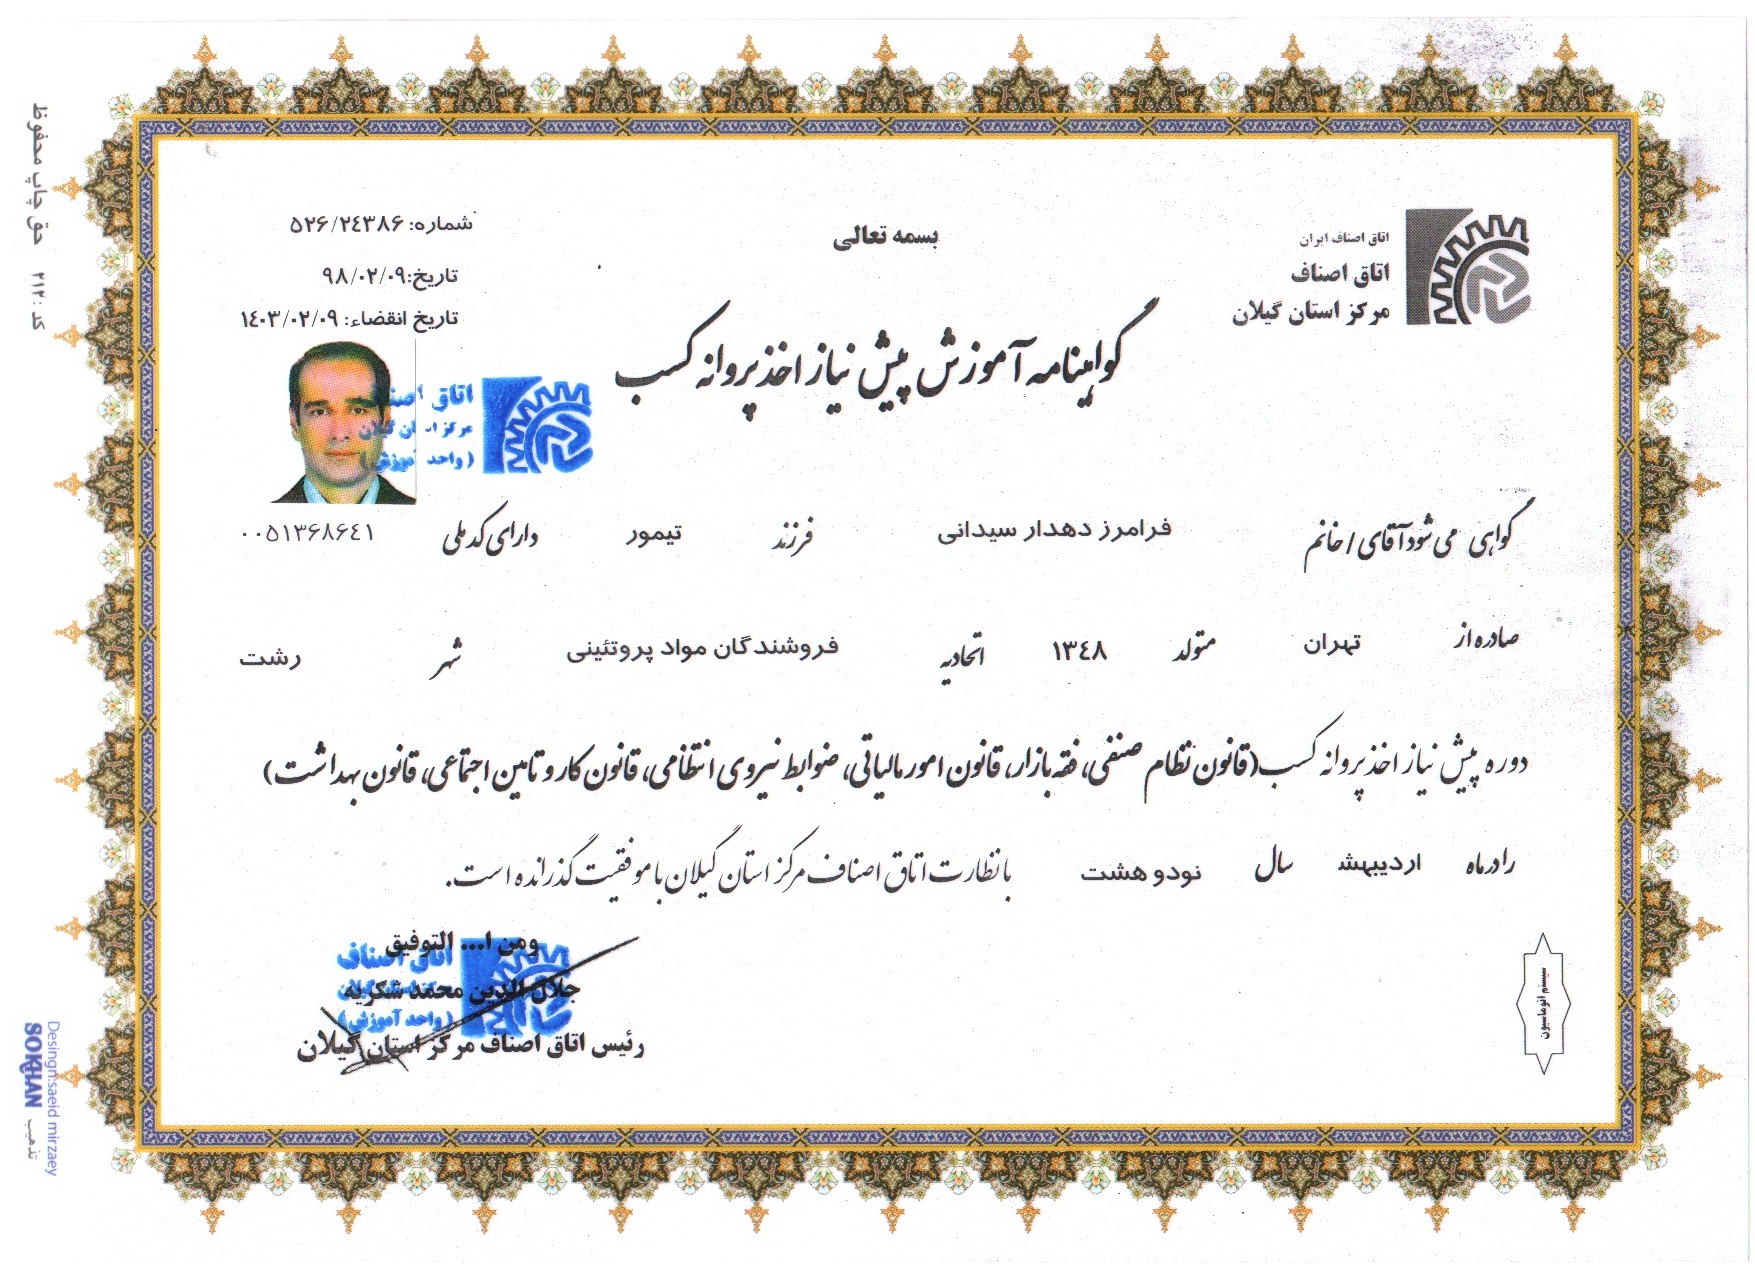 بسمه تعالی
اتاق اصناف ایران
اتاق اصناف
مرکز استان گیلان
شماره: ۵۲۶/۲٤۳۸۶
تاریخ:۹۸/۰۲/۰۹
تاریخ انقضاء: ۱٤۰۳/۰۲/۰۹
گواهینامه آموزش پیش نیاز اخذ پروانه کسب
اتاق اصناف
مرکز استان گیلان
(واحد آموزش)
گواهی می شود آقای / خانم فرامرز دهدار سیدانی فرزند تیمور دارای کد ملی ۰۰۵۱۳۶۸۶٤۱
صادره از تهران متولد ۱۳٤۸ اتحادیه فروشندگان مواد پروتئینی شهر رشت
دوره پیش نیاز اخذ پروانه کسب(قانون نظام صنفی، فقه بازار، قانون امور مالیاتی، ضوابط نیروی انتظامی، قانون کار و تامین اجتماعی، قانون بهداشت)
را در ماه اردیبهشد سال نودو هشت با نظارت اتاق اصناف مرکز استان گیلان با موفقیت گذرانده است.
ومن ا... التوفیق
جلال الدین محمد شکریه
رئیس اتاق اصناف مرکز استان گیلان
اتاق اصناف
مرکز استان گیلان
(واحد آموزش)
سیستم اتوماسیون
کد :۲۱۲ حق چاپ محفوظ
Desingn:saeid mirzaey
SOKHAN تذهیب